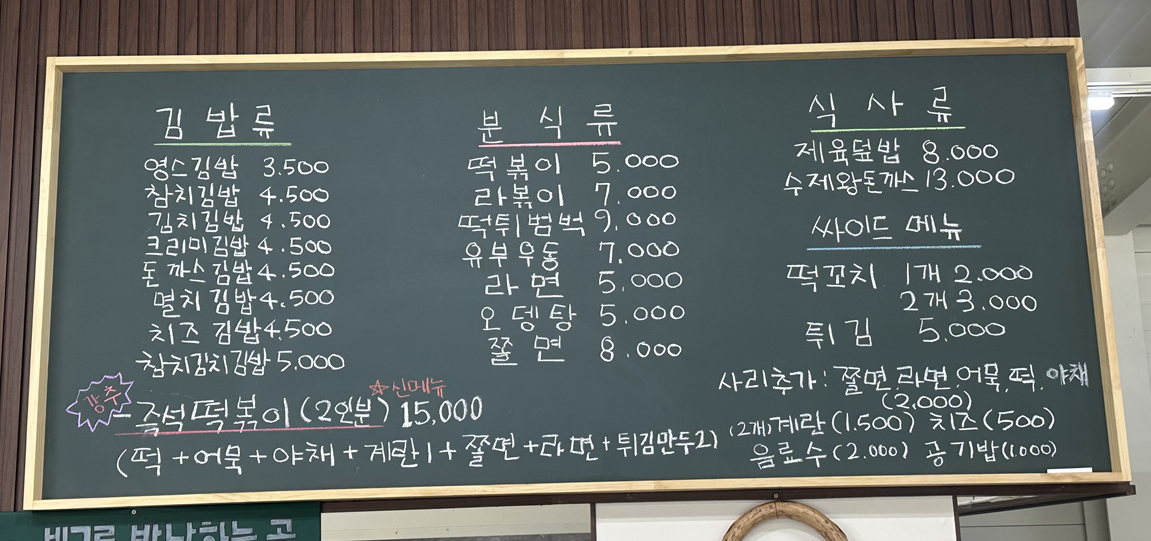 김밥류
영스김밥 3.500
참치김밥 4.500
김치김밥 4.500
크리미김밥 4.500
돈까스김밥 4.500
멸치김밥 4.500
치즈김밥 4.500
참치김치김밥 5.000
분식류
떡볶이 5.000
라볶이 7.000
떡튀범벅 9.000
유부우동 7.000
라면 5.000
오뎅탕 5.000
쫄면 8.000
식사류
제육덮밥 8.000
수제왕돈까스 13.000
싸이드 메뉴
떡꼬치 1개 2.000
2개 3.000
튀김 5.000
강추
☆신메뉴
-즉석떡볶이(2인분) 15,000
(떡+어묵+야채+계란1+쫄면+라면+튀김만두2)
사리추가: 쫄면,라면,어묵,떡,야채
(2,000)
(2개)계란(1.500) 치즈(500)
음료수(2.000) 공기밥(1.000)